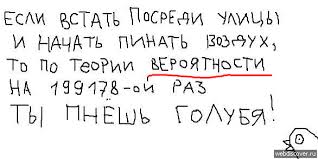 ЕСЛИ ВСТАТЬ ПОСРЕДИ УЛИЦЫ
И НАЧАТЬ ПИНАТЬ ВОЗДУХ,
ТО ПО ТЕОРИИ ВЕРОЯТНОСТИ
НА 199178-ОЙ РАЗ
ТЫ ПНЁШЬ ГОЛУБЯ!
webdiscover.ru